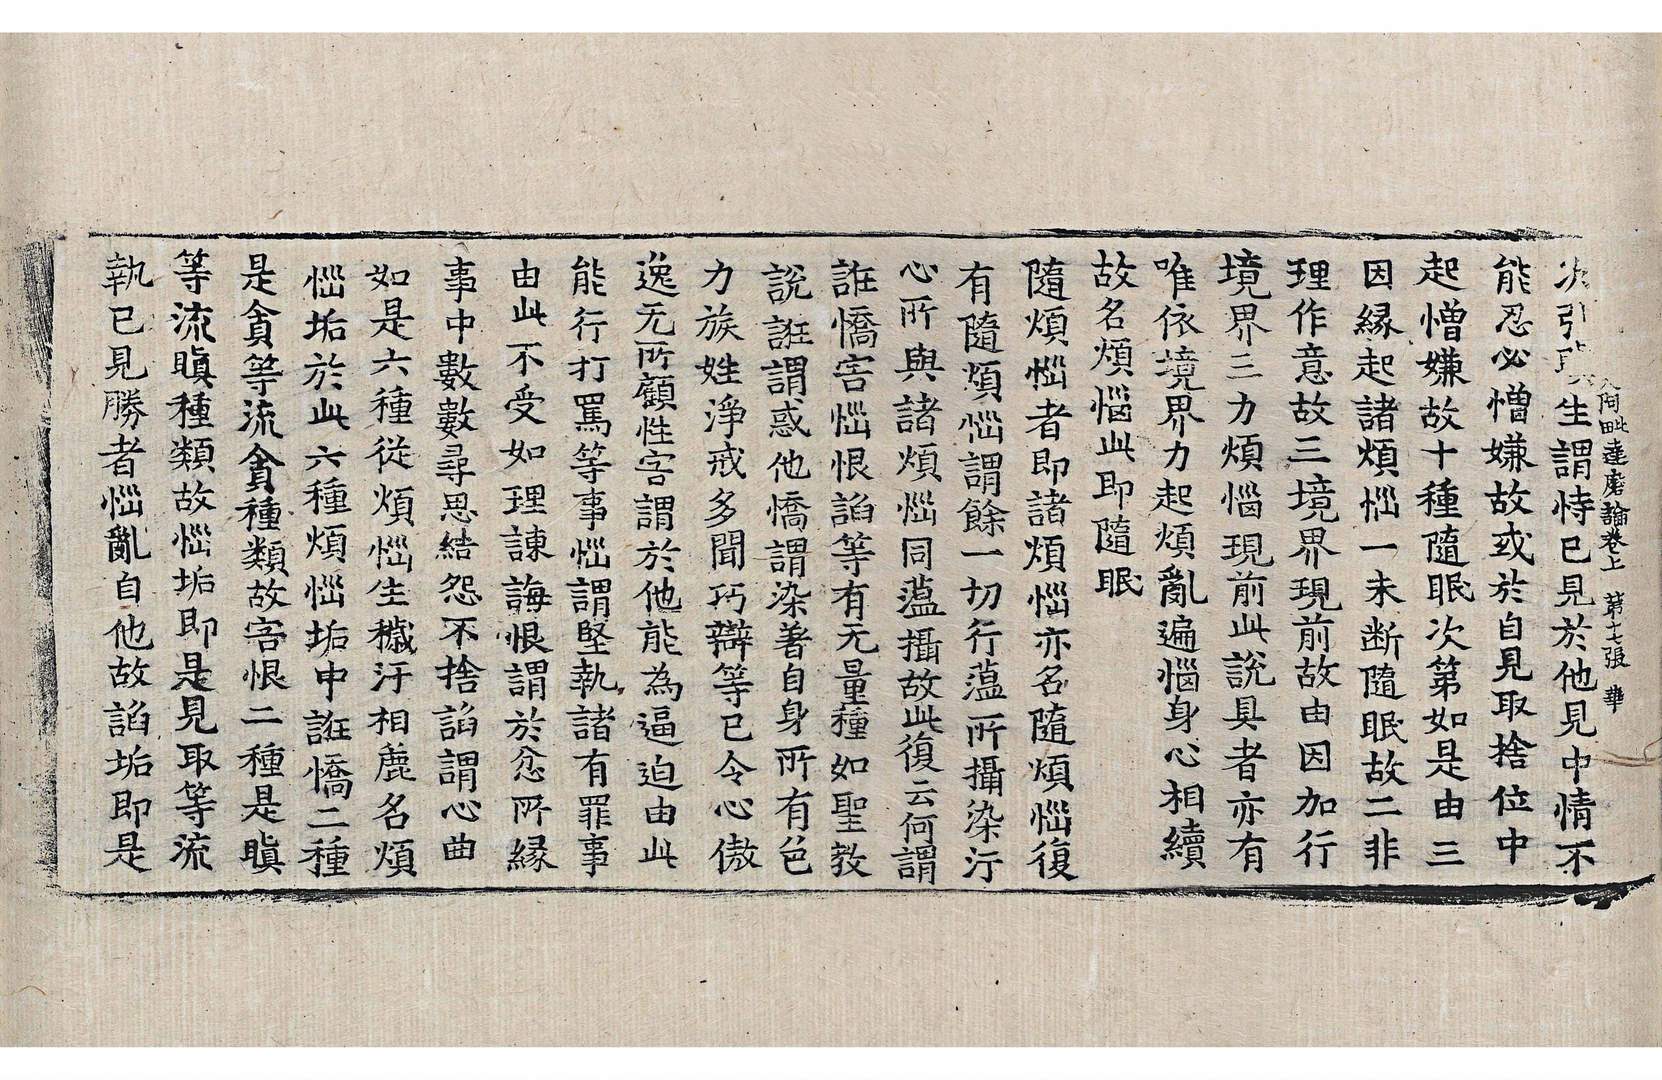 阿毗達磨論卷上 第十七張 華
次引生謂恃己見於他見中情不
能忍必憎嫌故或於自見取捨位中
起憎嫌故十種隨眠次第如是由三
因緣起諸煩惱一未断隨眠故二非
理作意故三境界現前故由因加行
境界三力煩惱現前此說具者亦有
唯依境界力起煩亂遍惱身心相續
故名煩惱此即隨眠
隨煩惱者即諸煩惱亦名隨煩惱復
有隨煩惱謂餘一切行蕰所攝染汙
心所與諸煩惱同蕰攝故此復云何謂
誑憍害惱恨諂等有无量種如聖教
說誑謂惑他憍謂染著自身所有色
力族姓淨戒多聞巧辯等已令心傲
逸无所顧性害謂於他能為逼迫由此
能行打罵等事惱謂堅執諸有罪事
由此不受如理諫誨恨謂於忿所緣
事中數數尋思結怨不捨諂謂心曲
如是六種從煩惱生穢汙相麁名煩
惱垢於此六種煩惱垢中誑憍二種
是貪等流貪種類故害恨二種是瞋
等流瞋種類故惱垢即是見取等流
執己見勝者惱亂自他故諂垢即是